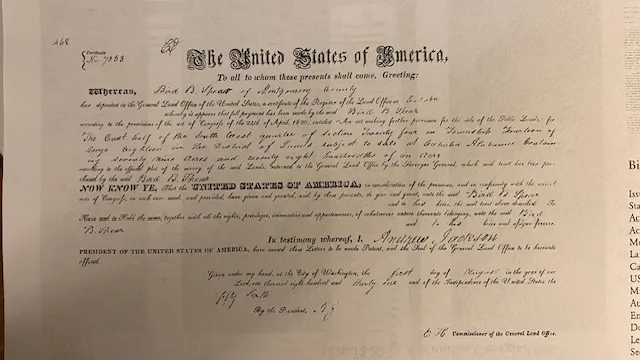 468
Certificate
No. 7353
The United States of America,
To all to whom these presents shall come, Greeting:
WHEREAS, Bird B. Spear of Montgomery County
has deposited in the General Land Office of the United States, a certificate of the Register of the Land Office at Cahaba
whereby it appears that full payment has been made by the said Bird B. Spear
according to the provisions of the act of Congress of the 24th of April, 1820, entitled "An act making further provision for the sale of the Public Lands, for
The East half of the South East quarter of Section Twenty four in Township Thirteen of
Range in the District of Lands subject to sale at Cahaba Alabama Contain
ing seventy nine Acres and seventy eight hundredths of an Acre
according to the official plat of the survey of the said Lands, returned to the General Land Office by the Surveyor General, which said tract has been pur-
chased by the said Bird B. Spear
NOW KNOW YE, That the UNITED STATES OF AMERICA, in consideration of the premises, and in conformity with the several
acts of Congress, in such case made and provided, have given and granted, and by these presents, do give and grant, unto the said Bird B. Spear
and to his heirs, the said tract above described: To
Have and to Hold the same, together with all the rights, privileges, immunities and appurtenances, of whatsoever nature thereunto belonging, unto the said Bird
B. Spear and to his heirs and assigns forever.
In testimony whereof, I, Andrew Jackson
PRESIDENT OF THE UNITED STATES OF AMERICA, have caused these Letters to be made Patent, and the Seal of the General Land Office to be hereunto
affixed.
Given under my hand, at the City of Washington, the first day of August in the year of our
Lord one thousand eight hundred and thirty one and of the Independence of the United States the
fifty sixth
By the President,
E. H. Commissioner of the General Land Office.
Bi
Issu
Sta
Ac
Ac
Me
La
Ca
US
Mi
Au
En
Do
Le
Se